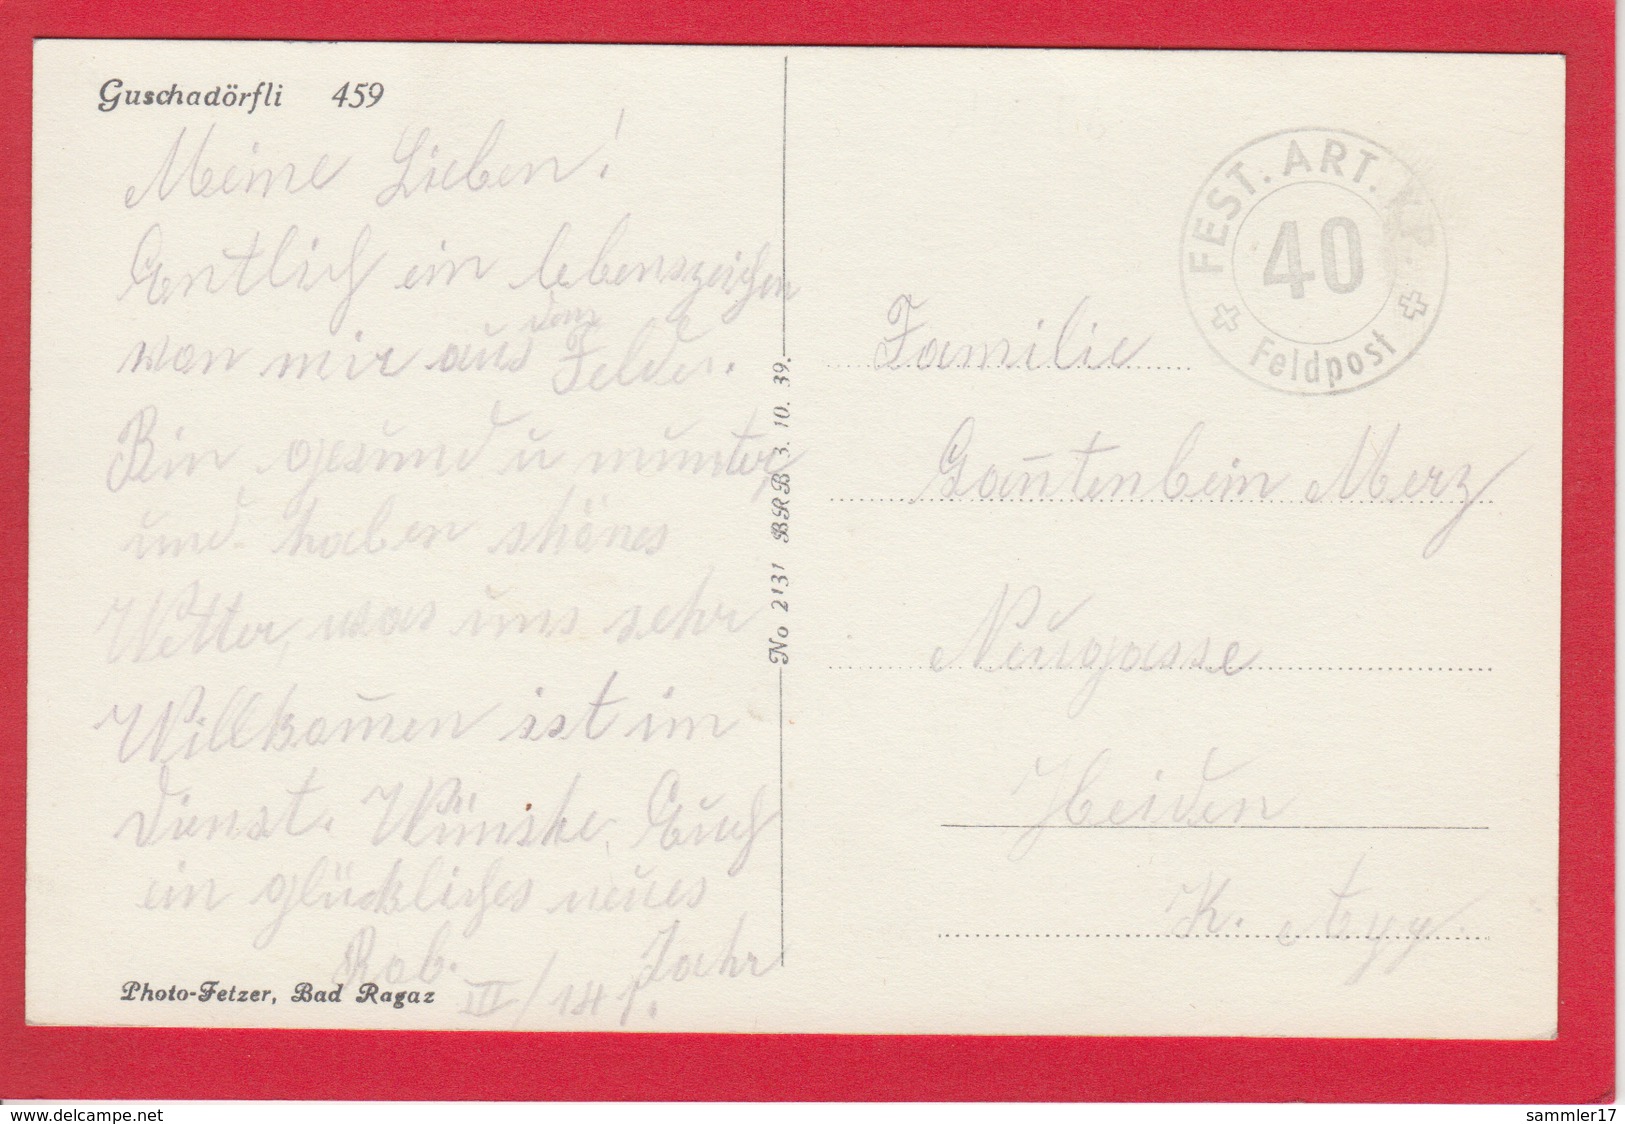 Guschadörfli 459
Meine Lieben!
Entlich ein lebenszeichen
von mir aus dem Felde.
Bin gesund u munter,
und haben shönes
Wetter, was uns sehr
Willkom̅en ist im
dienst. Wünshe Euch
ein glückliches neues
Jahr
Rob.
III/141.
Photo-Fetzer, Bad Ragaz
No 2131 BRB 3. 10. 39.
FEST. ART.
40
Feldpost
Familie
Gan̅tenbein Merz
Neugasse
Heiden
K. App.
www.delcampe.net
sammler17